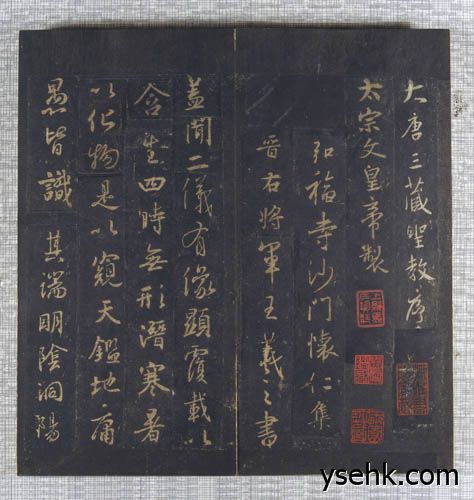 大唐三藏聖教序
太宗文皇帝製
弘福寺沙門懷仁集
晉右將軍王羲之書
蓋聞二儀有像顯覆載以
含生四時無形潛寒暑
以化物是以窺天鑑地庸
愚皆識其端明陰洞陽
ysehk.com